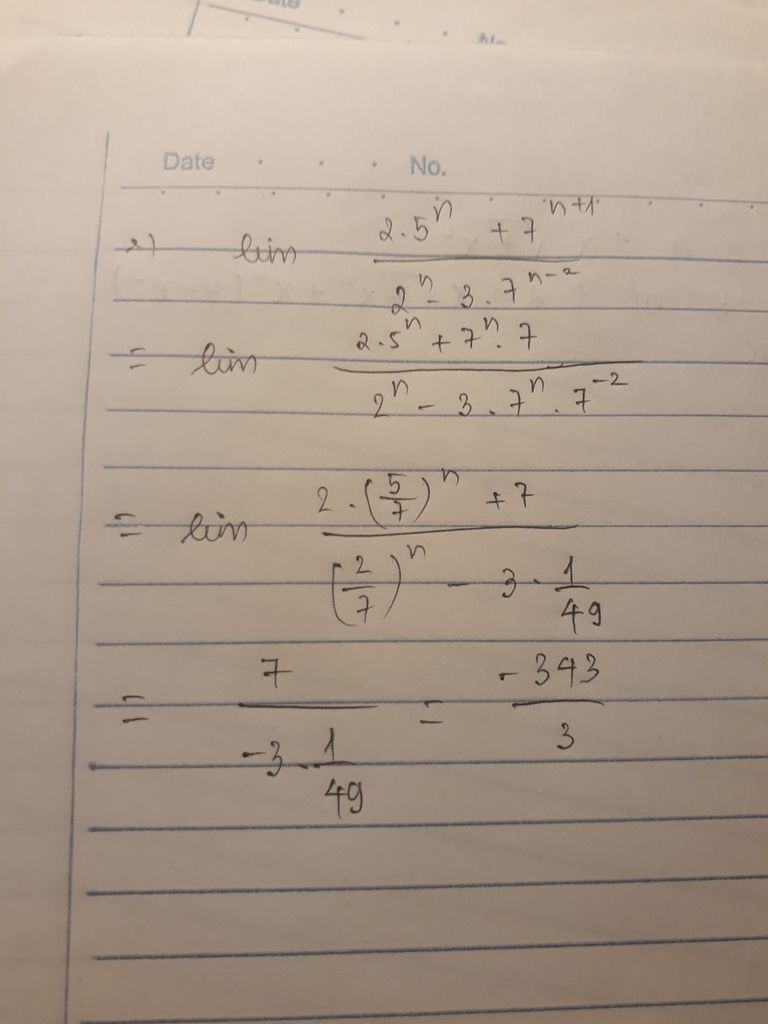 Date No.
lim (2.5^n + 7^(n+1)) / (2^n - 3.7^(n-2))
= lim (2.5^n + 7^n.7) / (2^n - 3.7^n.7^(-2))
= lim (2.(5/7)^n + 7) / ((2/7)^n - 3.1/49)
= 7 / (-3.1/49) = -343/3